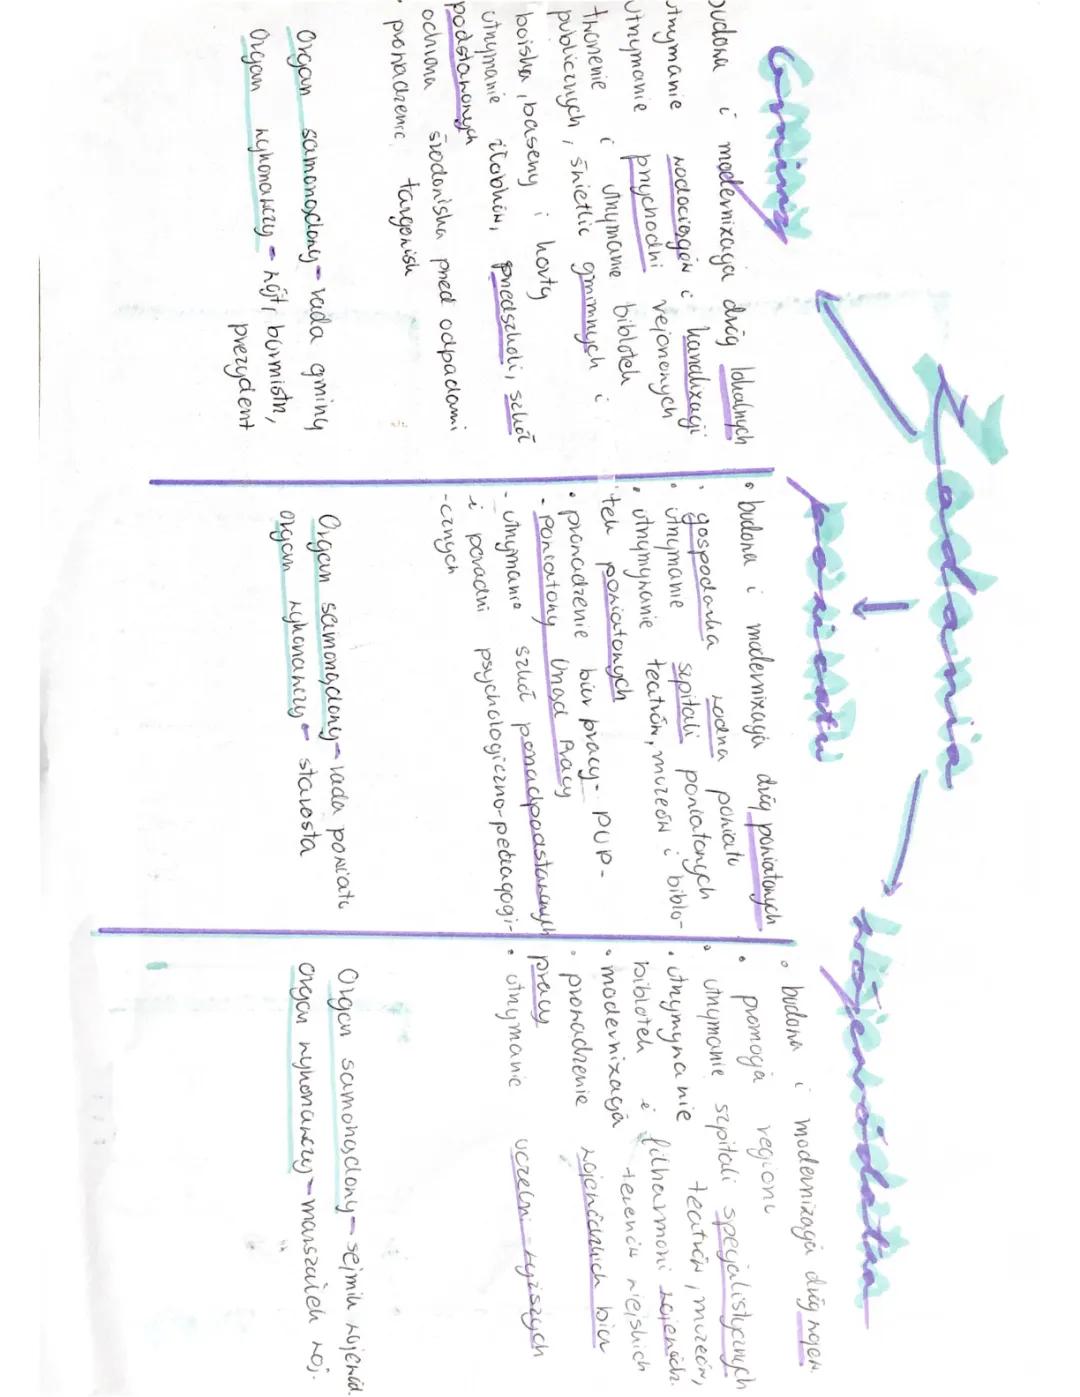 Zadania
Gminy
budowa i modernizacja dróg lokalnych
utrzymanie wodociągów i kanalizacji
utrzymanie przychodni rejonowych
tworzenie i utrzymanie bibliotek
publicznych, świetlic gminnych i
boiska, baseny i korty
utrzymanie żłobków, przedszkoli, szkół
podstawowych
ochrona środowiska przed odpadami
• prowadzenie targowisk
Organ samorządowy - rada gminy
Organ wykonawczy - wójt, burmistrz,
prezydent
powiatu
• budowa i modernizacja dróg powiatowych
• gospodarka wodna powiatu
• utrzymanie szpitali powiatowych
• utrzymywanie teatrów, muzeów i biblio-
tek powiatowych
• prowadzenie biur pracy - PUP -
- Powiatowy Urząd Pracy
- utrzymanie szkół ponadpodstawowych
i poradni psychologiczno-pedagogi-
-cznych
Organ samorządowy - rada powiatu
organ wykonawczy - starosta
województwa
• budowa i modernizacja dróg wojew.
• promocja regionu
• utrzymanie szpitali specjalistycznych
• utrzymywanie teatrów, muzeów,
bibliotek i filharmoni wojewódz.
• modernizacja terenów wiejskich
• prowadzenie wojewódzkich biur
pracy
• utrzymanie uczelni wyższych
Organ samorządowy - sejmik wojewód.
organ wykonawczy - marszałek woj.